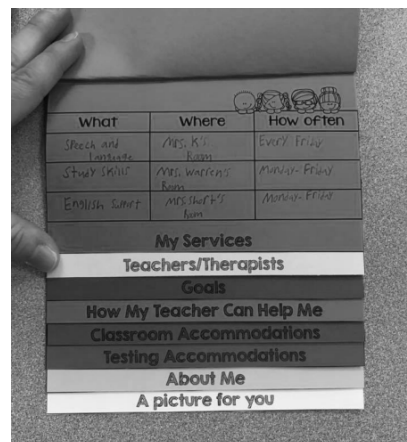 What Where How often
Speech and Language Mrs. K's Room Every Friday
Study Skills Mrs. Warren's Room Monday-Friday
English Mrs. Short's Room Monday-Friday
My Services
Teachers/Therapists
Goals
How My Teacher Can Help Me
Classroom Accommodations
Testing Accommodations
About Me
A picture for you